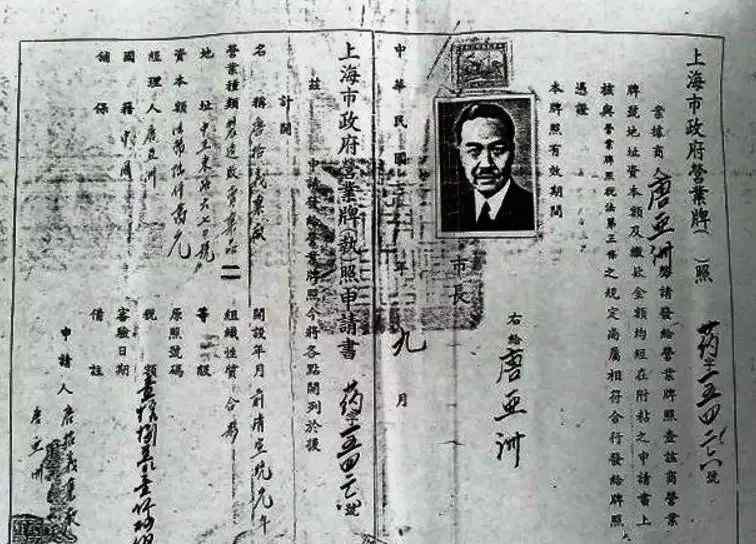 上海市政府營業牌（ ）照
药字一五四二六號
業據商人唐亞洲聲請發給營業牌照查該商營業
牌號地址資本額及繳款金額均經在附粘之申請書上
核與營業牌照稅法第三條之規定尚屬相符合行發給牌照
憑證
本牌照有效期間
右給唐亞洲
市長
中華民國 年 九月
上海市政府營業牌（執）照申請書
药字一五四二六號
茲 申請發給營業牌照今將各點開列於後
計開
名稱唐拾義藥廠
開設年月前清宣統元年
營業種類製造成藥藥品
組織性質合夥
地址
等級
資本額
原照號碼
經理人唐亞洲
稅額
國籍中國
審驗日期
鋪保
備註
申請人唐拾義藥廠
唐亞洲